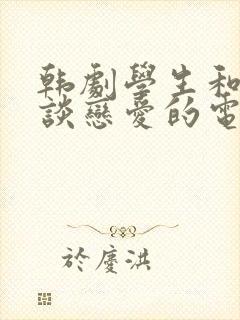 韩劇學生和
談戀愛的電
於慶洪